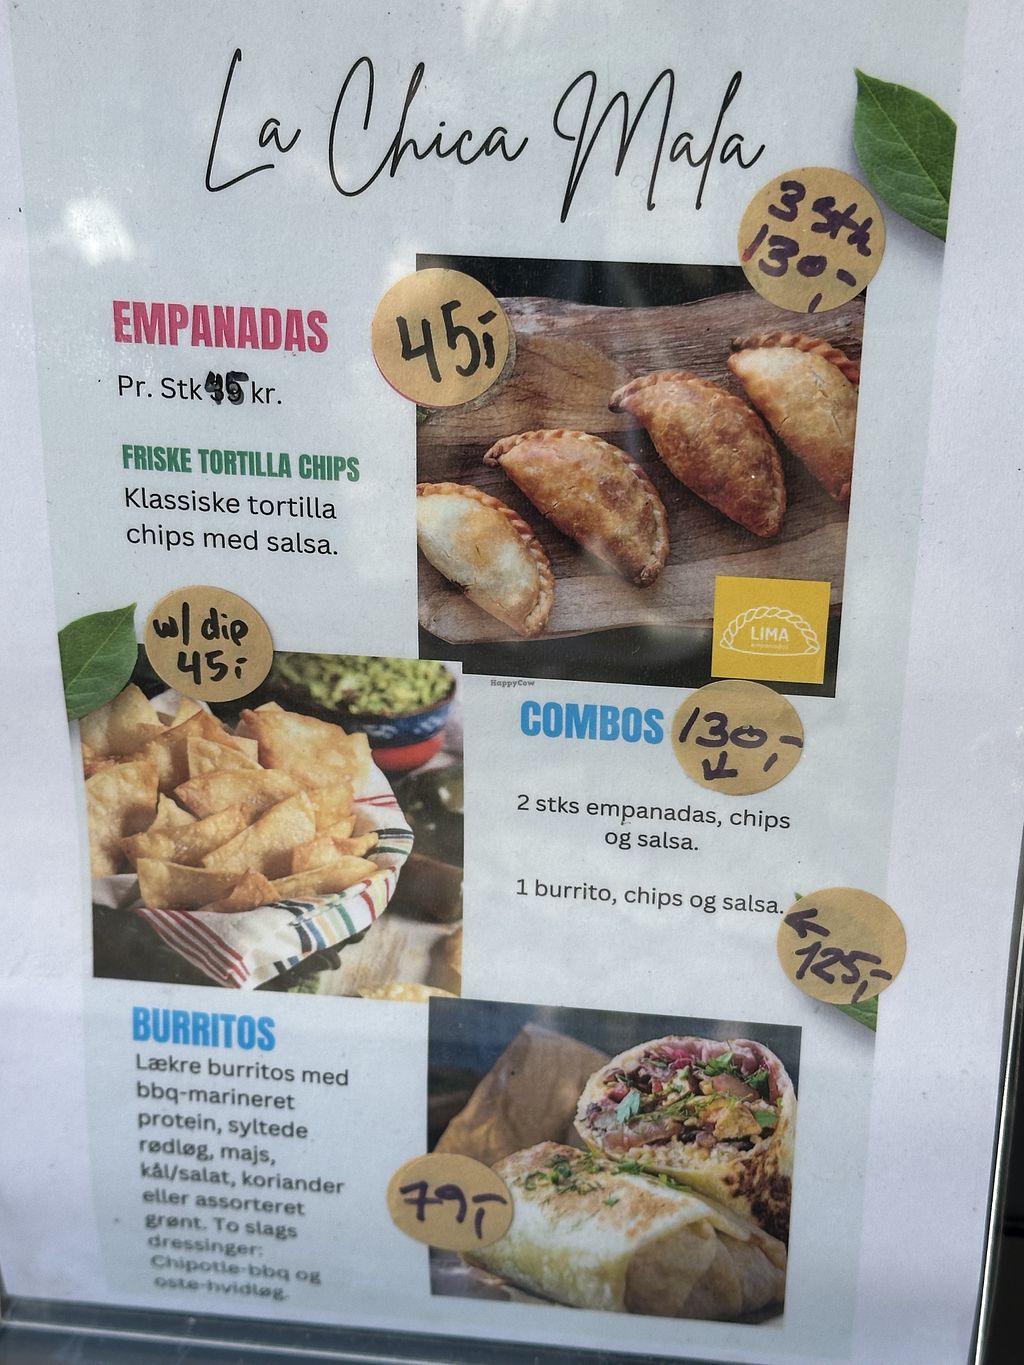 La Chica Mala
3 Stk
130,-
EMPANADAS
45,-
Pr. Stk 45 kr.
FRISKE TORTILLA CHIPS
Klassiske tortilla
chips med salsa.
LIMA
w/ dip
45,-
HappyCow
COMBOS
130,-
2 stks empanadas, chips
og salsa.
1 burrito, chips og salsa.
125,-
BURRITOS
Lækre burritos med
bbq-marineret
protein, syltede
rødløg, majs,
kål/salat, koriander
eller assorteret
grønt. To slags
dressinger:
Chipotle-bbq og
oste-hvidløg.
79,-